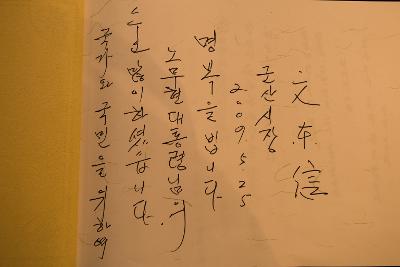 국가와 국민을 위하여
수고 많이 하셨습니다.
노무현 대통령님의
명복을 빕니다
2009. 5. 25
군산시장
文東信